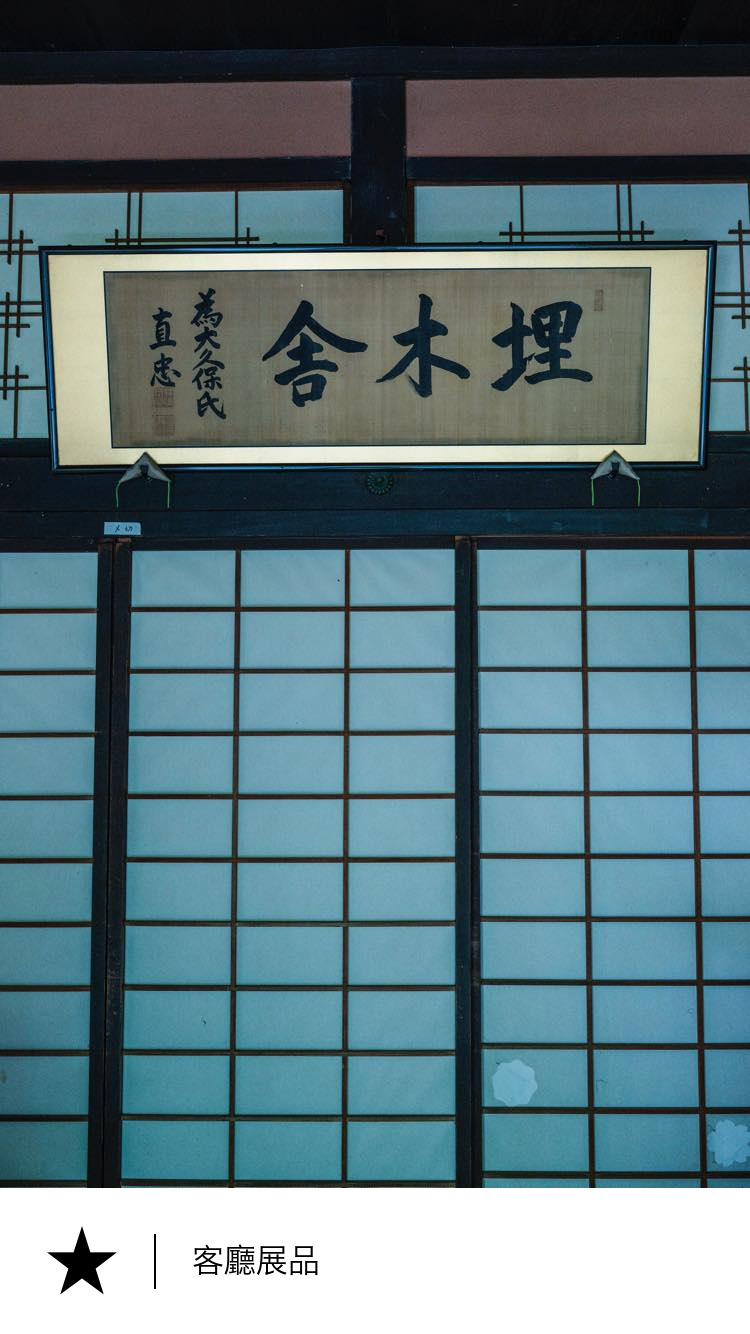 埋木舎
為大久保氏
直忠
〆切
客廳展品